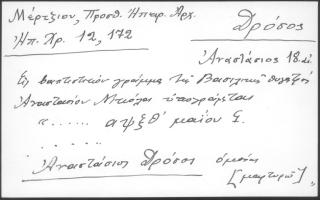 Μέρτζιον, Προσθ. Ηπειρ. Αρχ.
Ηπ. Χρ. 12, 172
Δρόσος
Αναστάσιος 18. αι
Εις βαπτιστικόν γράμμα της Βασιλικής θυγατρός
Αναστασίου υπογράφεται
"...... αψξθ' μαΐου
. . . . . .
Αναστάσιος Δρόσος ομοίως
[μαρτυρώ]"